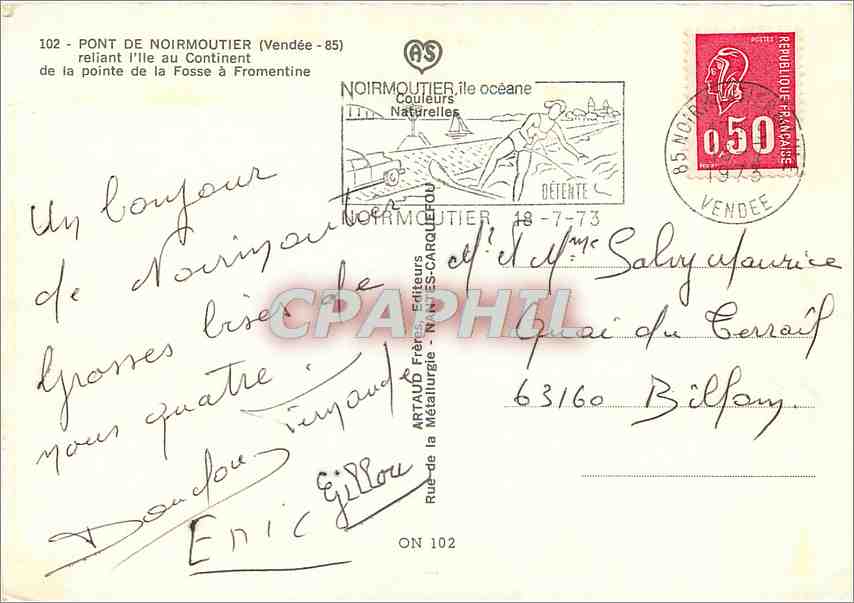 102 - PONT DE NOIRMOUTIER (Vendée - 85)
reliant l'Ile au Continent
de la pointe de la Fosse à Fromentine
AS
NOIRMOUTIER, île océane
Couleurs
Naturelles
DÉTENTE
NOIRMOUTIER 18 -7-73
POSTES
RÉPUBLIQUE FRANÇAISE
0,50
85 NOIRMOUTIER
1973
VENDEE
Un bonjour
de Noirmoutier
Grosses bises de
nous quatre.
Fernande
Doudou
Eric
Gillou
ARTAUD Frères, Editeurs
Rue de la Métallurgie - NANTES-CARQUEFOU
Mr et Mme Salvy Maurice
Quai du Terrail
63160 Billom
CPAPHIL
ON 102